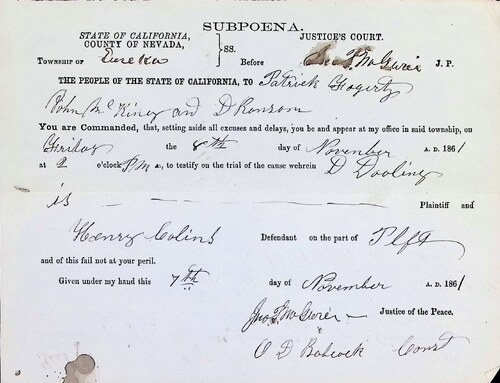 SUBPOENA.
STATE OF CALIFORNIA, JUSTICE'S COURT.
COUNTY OF NEVADA, } SS.
TOWNSHIP OF Eureka Before Jno S. McGuire J. P.
THE PEOPLE OF THE STATE OF CALIFORNIA, TO Patrick Fogerty
John McKiney and D Ransom
You are Commanded, that, setting aside all excuses and delays, you be and appear at my office in said township, on
Friday the 8th day of November A. D. 1861
at 2 o'clock P.M., to testify on the trial of the cause wherein D Dooling
is Plaintiff and
Henry Colins Defendant on the part of Plft
and of this fail not at your peril.
Given under my hand this 7th day of November A. D. 1861
Jno S. McGuire Justice of the Peace.
O D Babcock Const